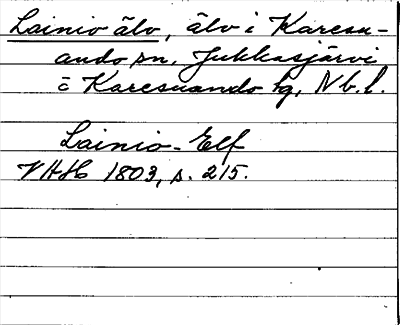 Lainio älv, älv i Karesu-
ando sn, Jukkasjärvi
o Karesuando tg, Nb. l.
Lainio-Elf
VAH 1803, s. 215.